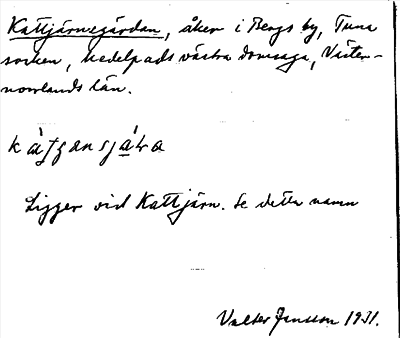 Kattjärnegärdan, åker i Bergs by, Tuna
socken, Medelpads västra domsaga, Väster-
norrlands län.
Ligger vid Kattjärn. Se detta namn
Valter Jansson 1931.